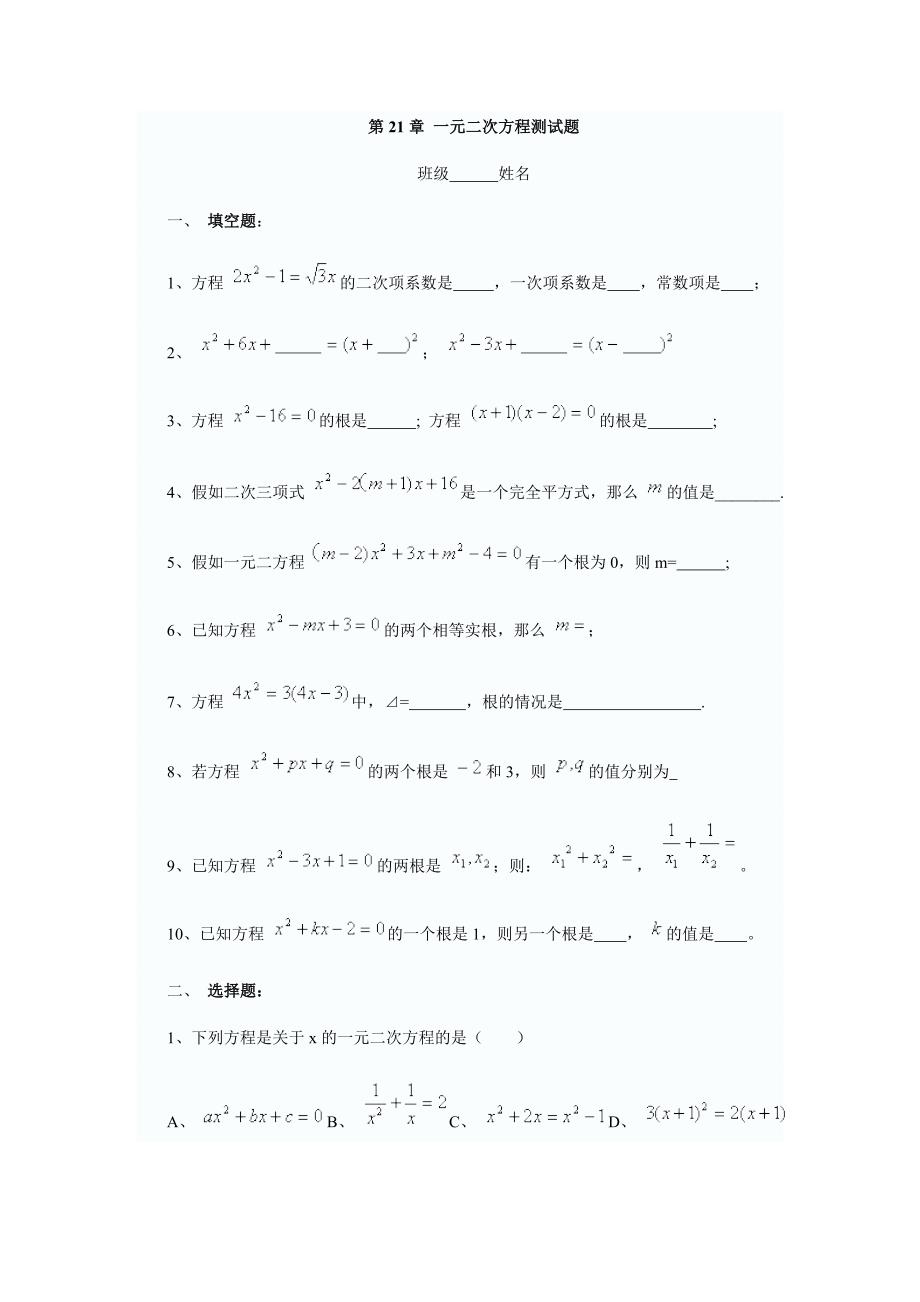 第 21 章 一元二次方程测试题
班级______姓名
一、 填空题：
1、方程 2x²－1=√3x 的二次项系数是_____，一次项系数是____，常数项是____；
2、 x²+6x+______=(x+____)²； x²－3x+______=(x－_____)²
3、方程 x²－16=0 的根是______; 方程 (x+1)(x－2)=0 的根是________;
4、假如二次三项式 x²－2(m+1)x+16 是一个完全平方式，那么 m 的值是________.
5、假如一元二方程 (m－2)x²+3x+m²－4=0 有一个根为 0，则 m=______;
6、已知方程 x²－mx+3=0 的两个相等实根，那么 m=；
7、方程 4x²=3(4x－3) 中，⊿=_______，根的情况是_________________.
8、若方程 x²+px+q=0 的两个根是 －2 和 3，则 p,q 的值分别为_
9、已知方程 x²－3x+1=0 的两根是 x₁,x₂；则： x₁²+x₂²=， 1/x₁+1/x₂= 。
10、已知方程 x²+kx－2=0 的一个根是 1，则另一个根是____， k 的值是____。
二、 选择题：
1、下列方程是关于 x 的一元二次方程的是（ ）
A、 ax²+bx+c=0 B、 1/x²+1/x=2 C、 x²+2x=x²－1 D、 3(x+1)²=2(x+1)